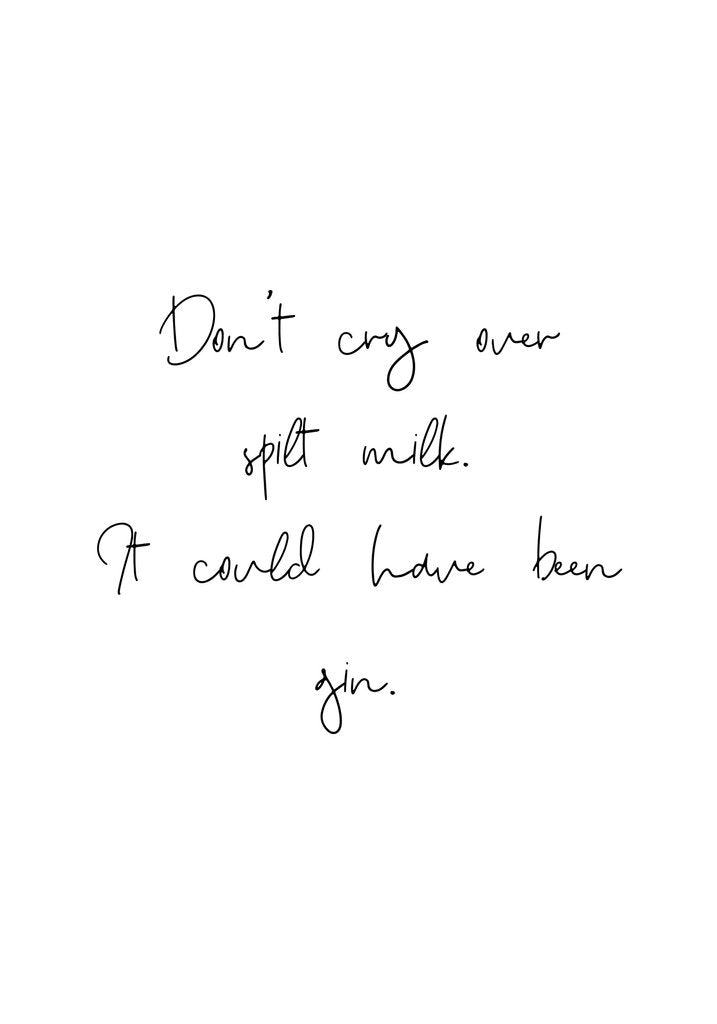 Don't cry over
spilt milk.
It could have been
gin.